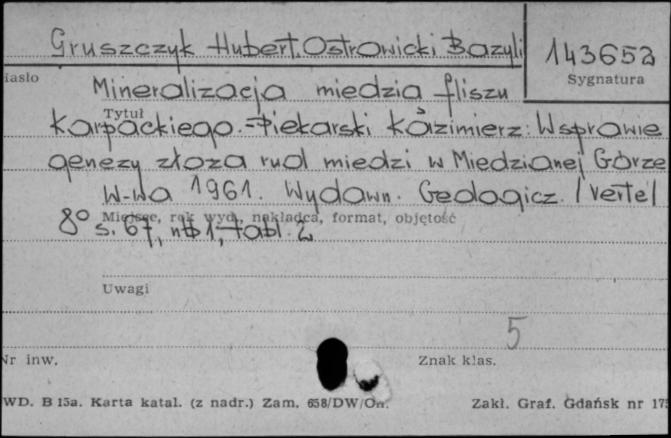 Gruszczyk Hubert. Ostrowicki Bazyli
143652
Sygnatura
Hasło
Mineralizacja miedzia fliszu
Tytuł
Karpackiego. - Piekarski Kazimierz: W sprawie
genezy złoza rud miedzi w Miedzianej Górze
W-wa 1961. Wydawn. Geologicz. / Vertel
Miejsce, rok wyd., nakładca, format, objętość
8° s. 67, nlb 1, tabl. 2
Uwagi
5
Nr inw.
Znak klas.
WD. B 15a. Karta katal. (z nadr.) Zam. 658/DW/On.
Zakł. Graf. Gdańsk nr 175